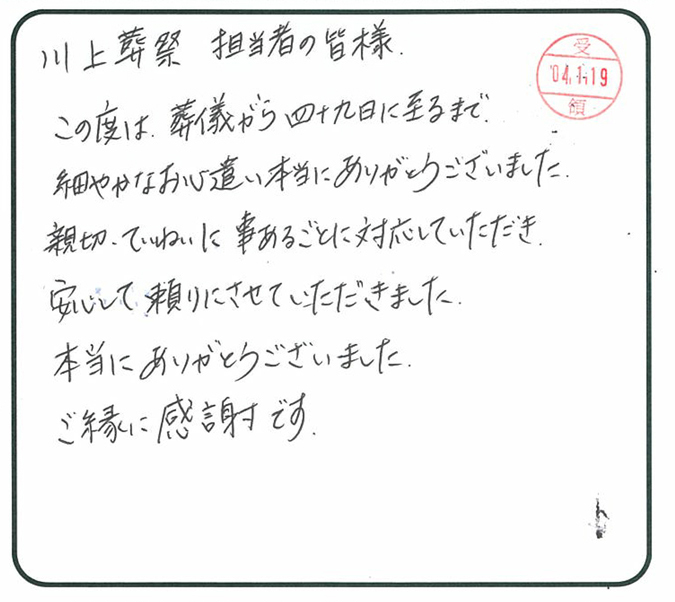 川上葬祭 担当者の皆様.
受
'04.1.19
領
この度は、葬儀から四十九日に至るまで、
細やかなお心遣い本当にありがとうございました.
親切、ていねいに事あるごとに対応していただき、
安心して頼りにさせていただきました.
本当にありがとうございました.
ご縁に感謝です.